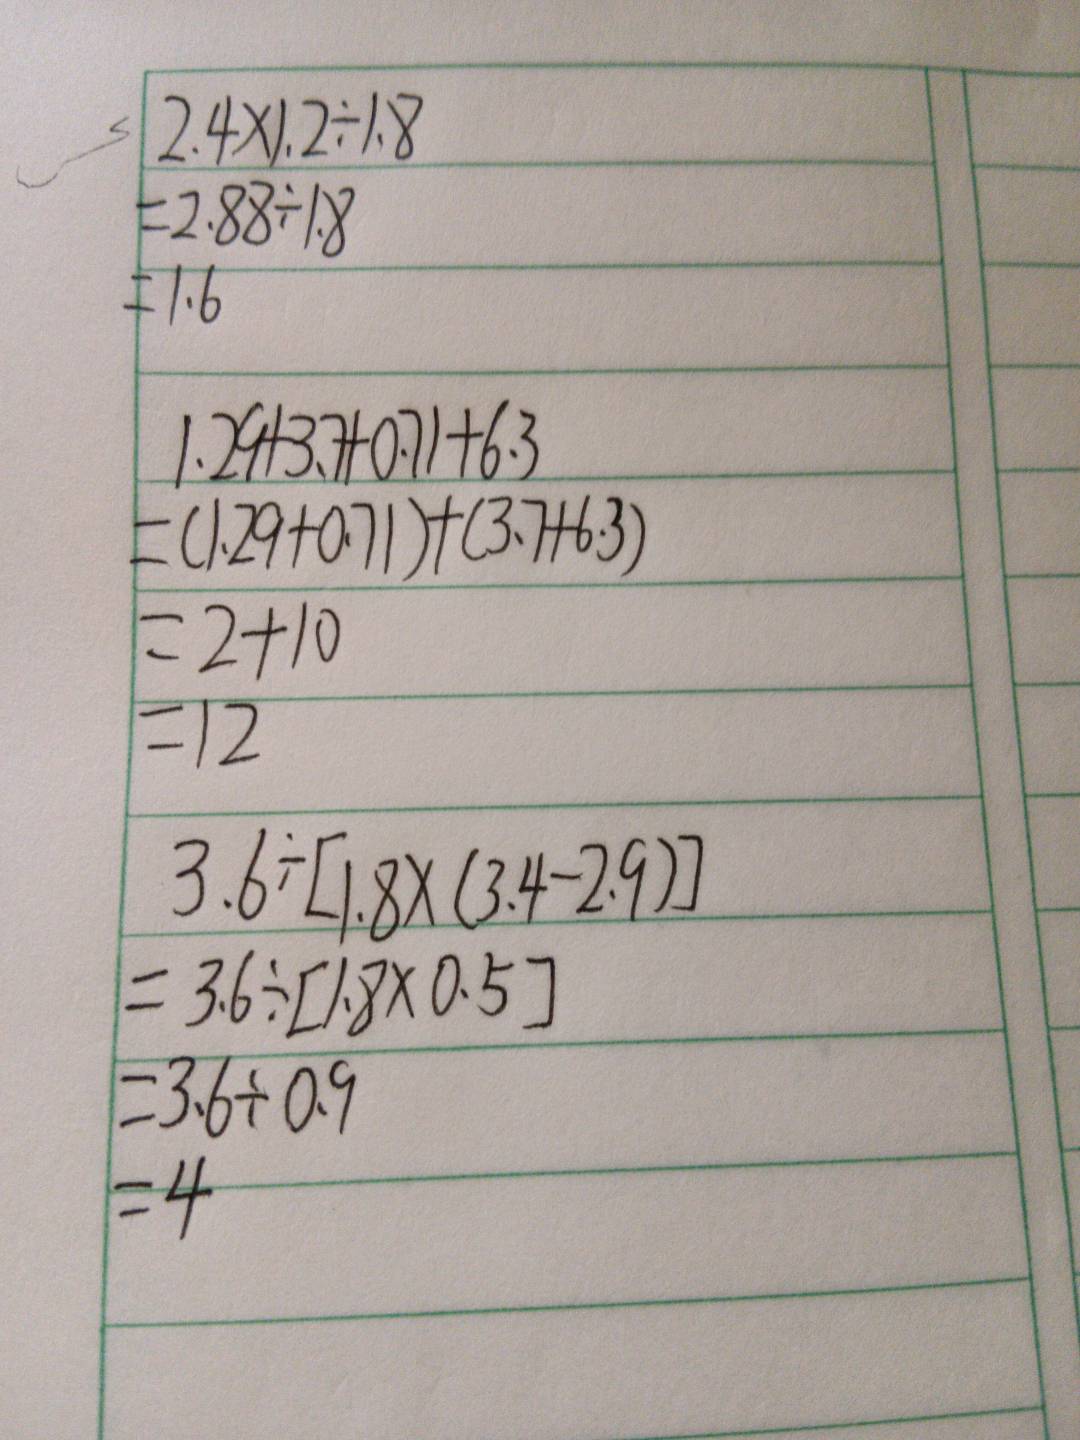 2.4×1.2÷1.8
=2.88÷1.8
=1.6
1.29+3.7+0.71+6.3
=(1.29+0.71)+(3.7+6.3)
=2+10
=12
3.6÷[1.8×(3.4-2.9)]
=3.6÷[1.8×0.5]
=3.6÷0.9
=4